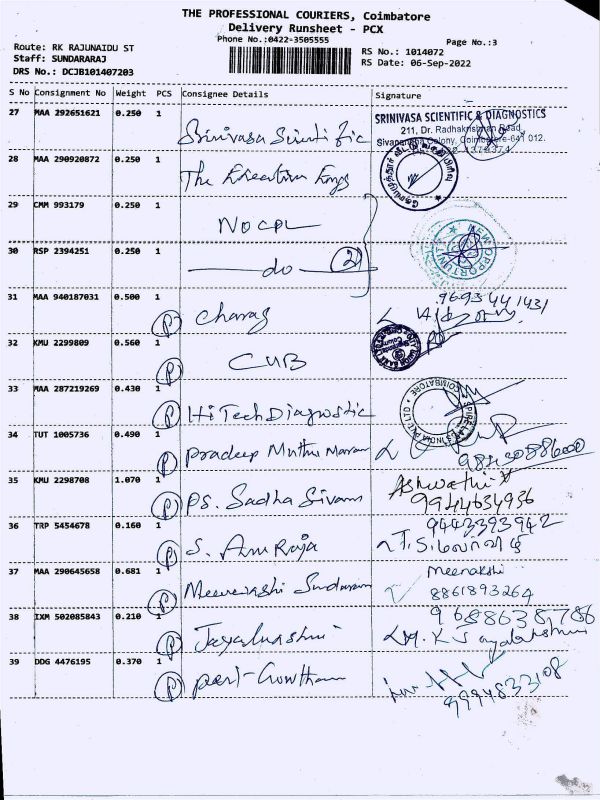 THE PROFESSIONAL COURIERS, Coimbatore
Delivery Runsheet - PCX
Phone No.:0422-3505555
Page No.:3
Route: RK RAJUNAIDU ST
Staff: SUNDARARAJ
DRS No.: DCJB101407203
RS No.: 1014072
RS Date: 06-Sep-2022
S No Consignment No Weight PCS Consignee Details Signature
27 MAA 292651621 0.250 1 Srinivasa Scientific
SRINIVASA SCIENTIFIC & DIAGNOSTICS
211, Dr. Radhakrishnan Road,
Colony, Coimbatore-641 012.
28 MAA 290920872 0.250 1 The
29 CMM 993179 0.250 1 NOCPL
NEW OPPORTUNITY
30 RSP 2394251 0.250 1 do 2
31 MAA 940187031 0.500 1 P Charag 9693441431
32 KMU 2299809 0.560 1 P CUB
33 MAA 287219269 0.430 1 P Hi Tech Diagnostic
COIMBATORE
34 TUT 1005736 0.490 1 P Pradeep Muthu
35 KMU 2298708 1.070 1 P PS. Sadha Sivam Ashwathi
9944634936
36 TRP 5454678 0.160 1 P S. Anu Raja 9443393942
37 MAA 290645658 0.681 1 P Meenakshi Sundaram Meenakshi
8861893264
38 IXM 502085843 0.210 1 P Jayalakshmi 9688638786
39 DDG 4476195 0.370 1 P Gowtham
9994833108